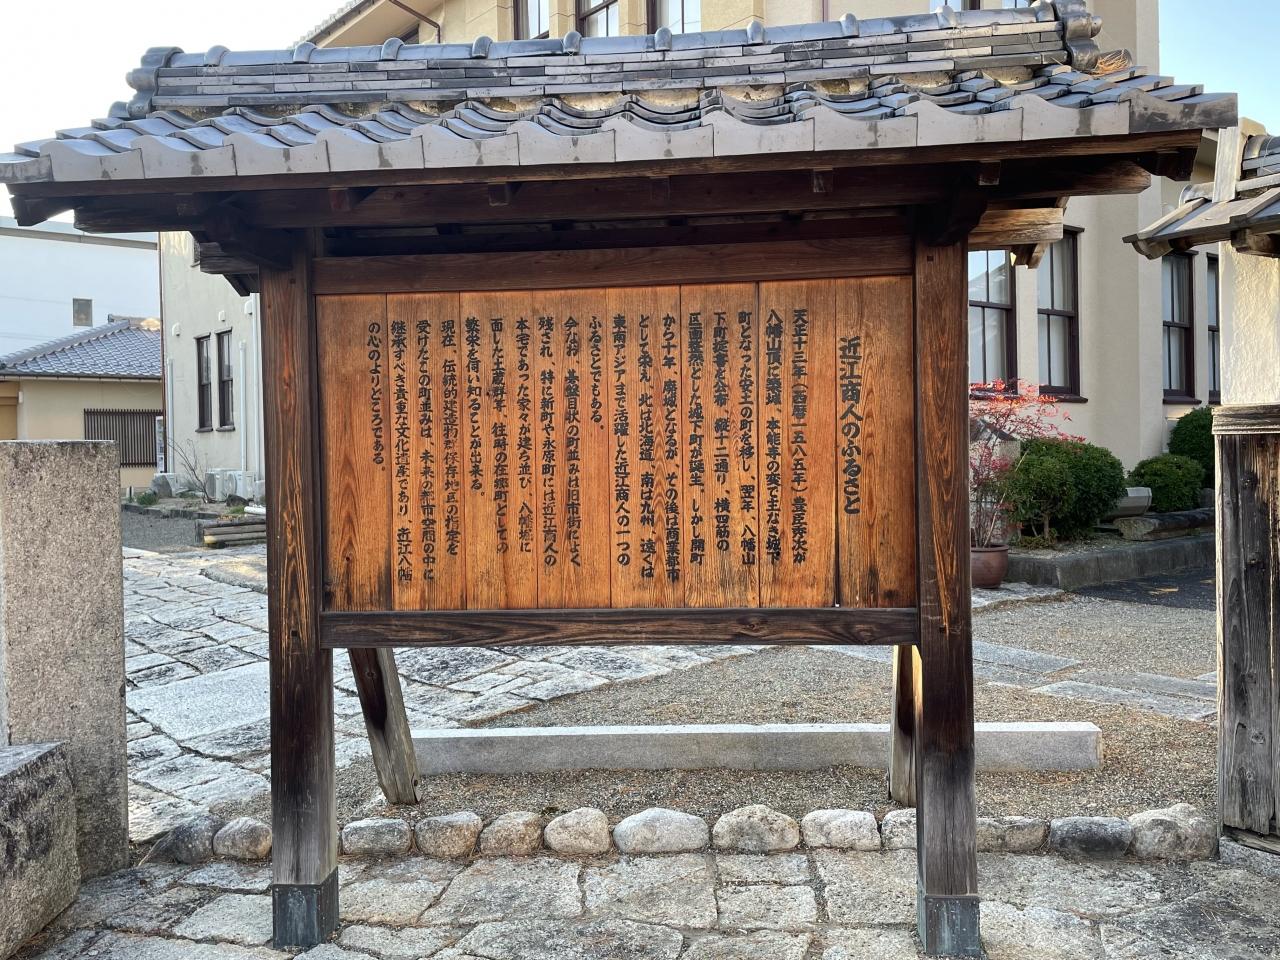 近江商人のふるさと
天正十三年(西暦一五八五年)豊臣秀次が
八幡山頂に築城、本能寺の変で主なき城下
町となった安土の町を移し、翌年、八幡山
下町掟書を公布、縦十二通り、横四筋の
区画整然とした城下町が誕生。しかし開町
から十年、廃城となるが、その後は商業都市
として栄え、北は北海道、南は九州、遠くは
東南アジアまで活躍した近江商人の一つの
ふるさとでもある。
今なお、碁盤目状の町並みは旧市街によく
残され、特に新町や永原町には近江商人の
本宅であった家々が建ち並び、八幡堀に
面した土蔵群等、往時の在郷町としての
繁栄を伺い知ることが出来る。
現在、伝統的建造物群保存地区の指定を
受けたこの町並みは、未来の都市空間の中に
継承すべき貴重な文化遺産であり、近江八幡
の心のよりどころである。